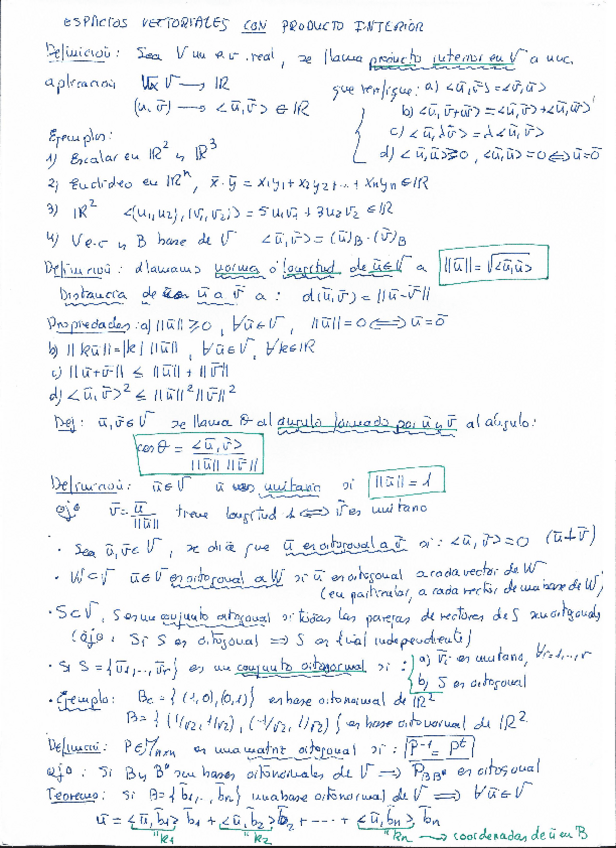 ESPACIOS VECTORIALES CON PRODUCTO INTERIOR
Definición: Sea V un e.v. real, se llama producto interior en V a una
aplicación V x V → IR que verifique: a) <ū,v̄> = <v̄,ū>
(ū,v̄) → <ū,v̄> ∈ IR b) <ū,v̄+w̄> = <ū,v̄>+<ū,w̄>
c) <ū,λv̄> = λ<ū,v̄>
d) <ū,ū> ≥ 0, <ū,ū> = 0 ⟺ ū = 0̄
Ejemplos:
1) Escalar en IR² y IR³
2) Euclídeo en IRⁿ, x̄·ȳ = x₁y₁+x₂y₂+...+xₙyₙ ∈ IR
3) IR² <(u₁,u₂),(v₁,v₂)> = 5u₁v₁ + 3u₂v₂ ∈ IR
4) V e.v. y B base de V <ū,v̄> = (ū)_B · (v̄)_B
Definición: llamamos norma o longitud de ū∈V a ||ū|| = √<ū,ū>
Distancia de ū a v̄ a: d(ū,v̄) = ||ū-v̄||
Propiedades: a) ||ū|| ≥ 0, ∀ū∈V, ||ū|| = 0 ⟺ ū = 0̄
b) ||kū|| = |k| ||ū||, ∀ū∈V, ∀k∈IR
c) ||ū+v̄|| ≤ ||ū|| + ||v̄||
d) <ū,v̄>² ≤ ||ū||² ||v̄||²
Def: ū,v̄∈V se llama θ al ángulo formado por ū y v̄ al ángulo:
cos θ = <ū,v̄> / ||ū|| ||v̄||
Definición: ū∈V ū es unitario si ||ū|| = 1
ojo v̄ = ū/||ū|| tiene longitud 1 ⟺ v̄ es unitario
· Sea ū,v̄∈V, se dice que ū es ortogonal a v̄ si: <ū,v̄> = 0 (ū⊥v̄)
· W⊂V ū∈V es ortogonal a W si ū es ortogonal a cada vector de W
(en particular, a cada vector de una base de W)
· S⊂V, S es un conjunto ortogonal si todas las parejas de vectores de S son ortogonales
(ojo: Si S es ortogonal ⟹ S es lineal independiente)
· Si S = {v̄₁,...,v̄r} es un conjunto ortonormal si: a) v̄i es unitario, ∀i=1,...,r
b) S es ortogonal
· Ejemplo: Bc = {(1,0),(0,1)} es base ortonormal de IR²
B = {(1/√2,1/√2), (-1/√2,1/√2)} es base ortonormal de IR²
Definición: P∈Mnxn es una matriz ortogonal si: P⁻¹ = Pᵗ
Ojo: Si B y B* son bases ortonormales de V → P_BB* es ortogonal
Teorema: Si B = {b̄₁,...,b̄n} una base ortonormal de V ⟹ ∀ū∈V
ū = <ū,b̄₁> b̄₁ + <ū,b̄₂> b̄₂ + ··· + <ū,b̄n> b̄n
"k₁ "k₂ "kn → coordenadas de ū en B